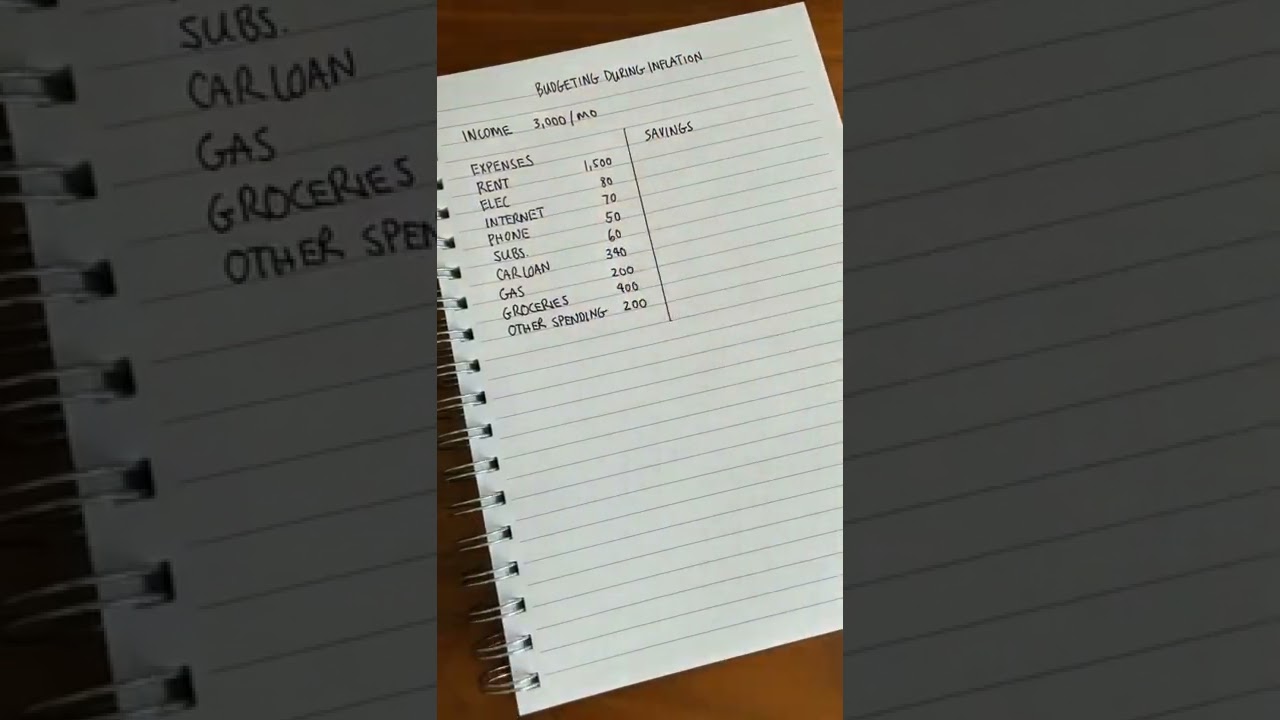 BUDGETING DURING INFLATION
INCOME 3,000/MO
EXPENSES SAVINGS
RENT 1,500
ELEC 80
INTERNET 70
PHONE 50
SUBS. 60
CAR LOAN 340
GAS 200
GROCERIES 400
OTHER SPENDING 200
SUBS.
CAR LOAN
GAS
GROCERIES
OTHER SPEN